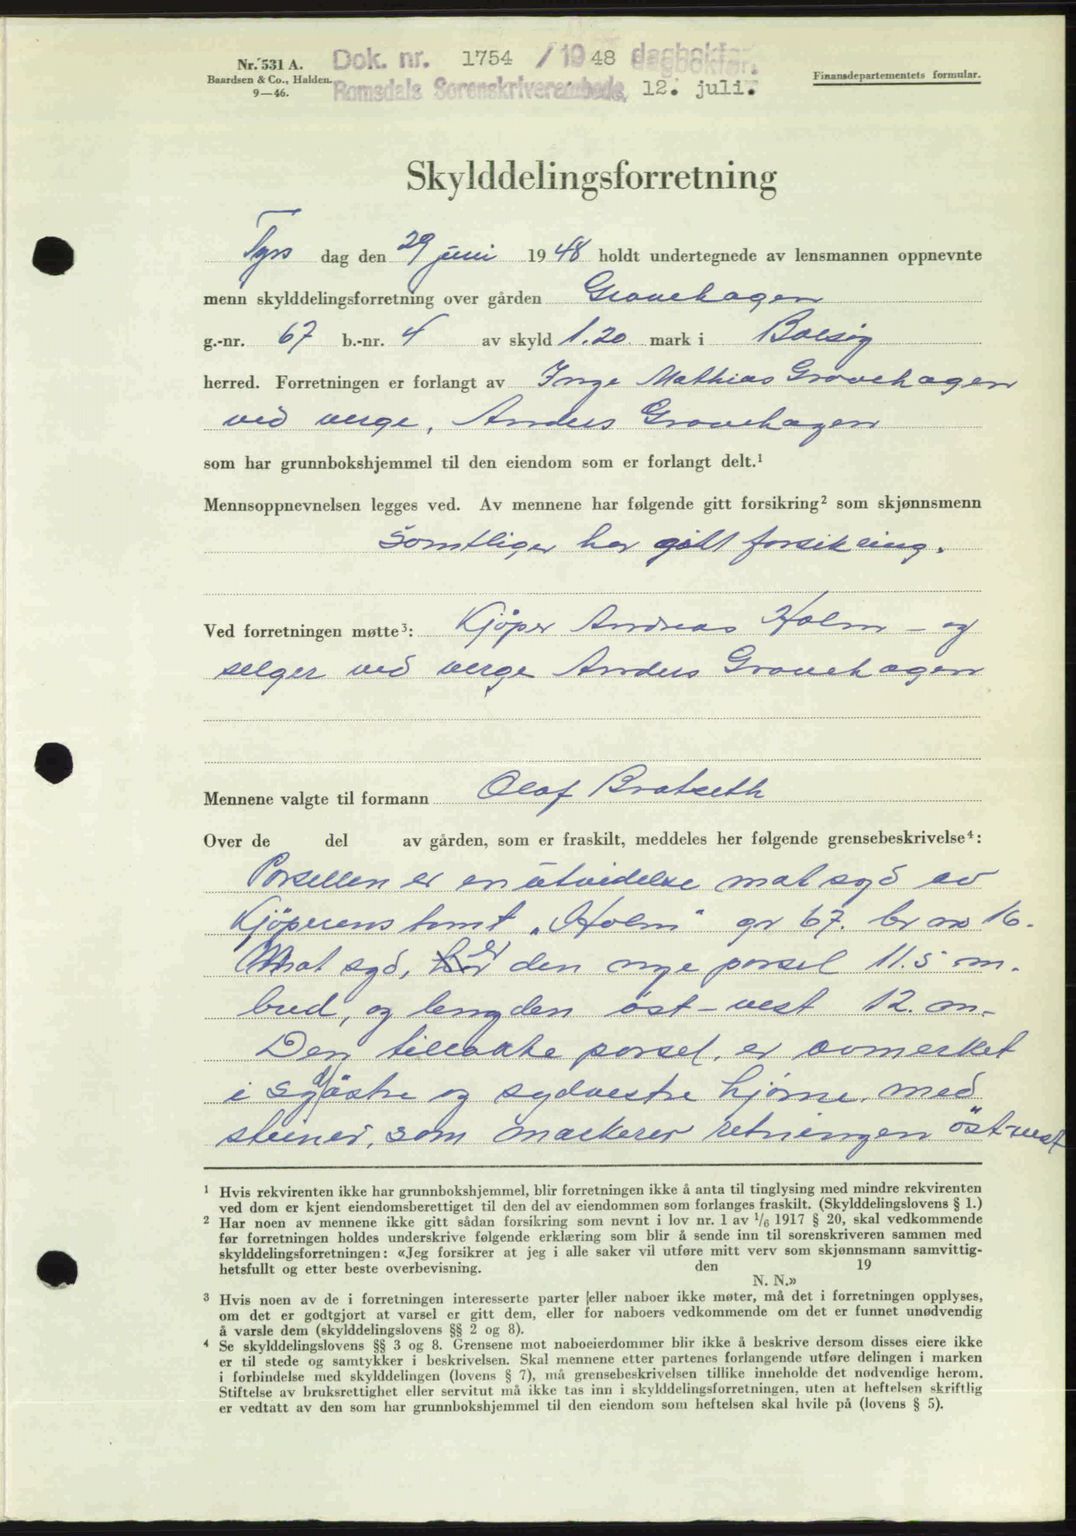 Nr. 531 A.
Baardsen & Co., Halden.
9—46.
Dok. nr. 1754 / 1948 dagbokført
Romsdals Sorenskriverembede, 12. juli.
Finansdepartementets formular.
Skylddelingsforretning
Tyrsdag den 29 juni 1948 holdt undertegnede av lensmannen oppnevnte
menn skylddelingsforretning over gården Grovehagen
g.-nr. 67 b.-nr. 4 av skyld 1.20 mark i Bolsøy
herred. Forretningen er forlangt av Inge Mathias Grovehagen
ved verge, Anders Grovehagen
som har grunnbokshjemmel til den eiendom som er forlangt delt.¹
Mennsoppnevnelsen legges ved. Av mennene har følgende gitt forsikring² som skjønnsmenn
Samtliger har gitt forsikring.
Ved forretningen møtte³: Kjöper Andreas Holm – og
selger ved verge Anders Grovehagen
Mennene valgte til formann Olaf Bratseth
Over de del av gården, som er fraskilt, meddeles her følgende grensebeskrivelse⁴:
Porsellen er en utvidelse mot syd av
Kjöperens tomt „Holm" gr 67. br no 16.
Mot syd, er den nye porsel 11.5 m.
bred, og lengden öst – vest 12. m.
Den tillakte porsel. er avmerket
i sydöstre og sydvestre hjörne. med
steiner, som markerer retningen öst-vest
¹ Hvis rekvirenten ikke har grunnbokshjemmel, blir forretningen ikke å anta til tinglysing med mindre rekvirenten
ved dom er kjent eiendomsberettiget til den del av eiendommen som forlanges fraskilt. (Skylddelingslovens § 1.)
² Har noen av mennene ikke gitt sådan forsikring som nevnt i lov nr. 1 av 1/6 1917 § 20, skal vedkommende
før forretningen holdes underskrive følgende erklæring som blir å sende inn til sorenskriveren sammen med
skylddelingsforretningen: «Jeg forsikrer at jeg i alle saker vil utføre mitt verv som skjønnsmann samvittig-
hetsfullt og etter beste overbevisning. den 19
N. N.»
³ Hvis noen av de i forretningen interesserte parter (eller naboer ikke møter, må det i forretningen opplyses,
om det er godtgjort at varsel er gitt dem, eller for naboers vedkommende om det er funnet unødvendig
å varsle dem (skylddelingslovens §§ 2 og 8).
⁴ Se skylddelingslovens §§ 3 og 8. Grensene mot naboeierdommer blir ikke å beskrive dersom disses eiere ikke
er til stede og samtykker i beskrivelsen. Skal mennene etter partenes forlangende utføre delingen i marken
i forbindelse med skylddelingen (lovens § 7), må grensebeskrivelsen tillike inneholde det nødvendige herom.
Stiftelse av bruksrettighet eller servitut må ikke tas inn i skylddelingsforretningen, uten at heftelsen skriftlig
er vedtatt av den som har grunnbokshjemmel til den eiendom som heftelsen skal hvile på (lovens § 5).